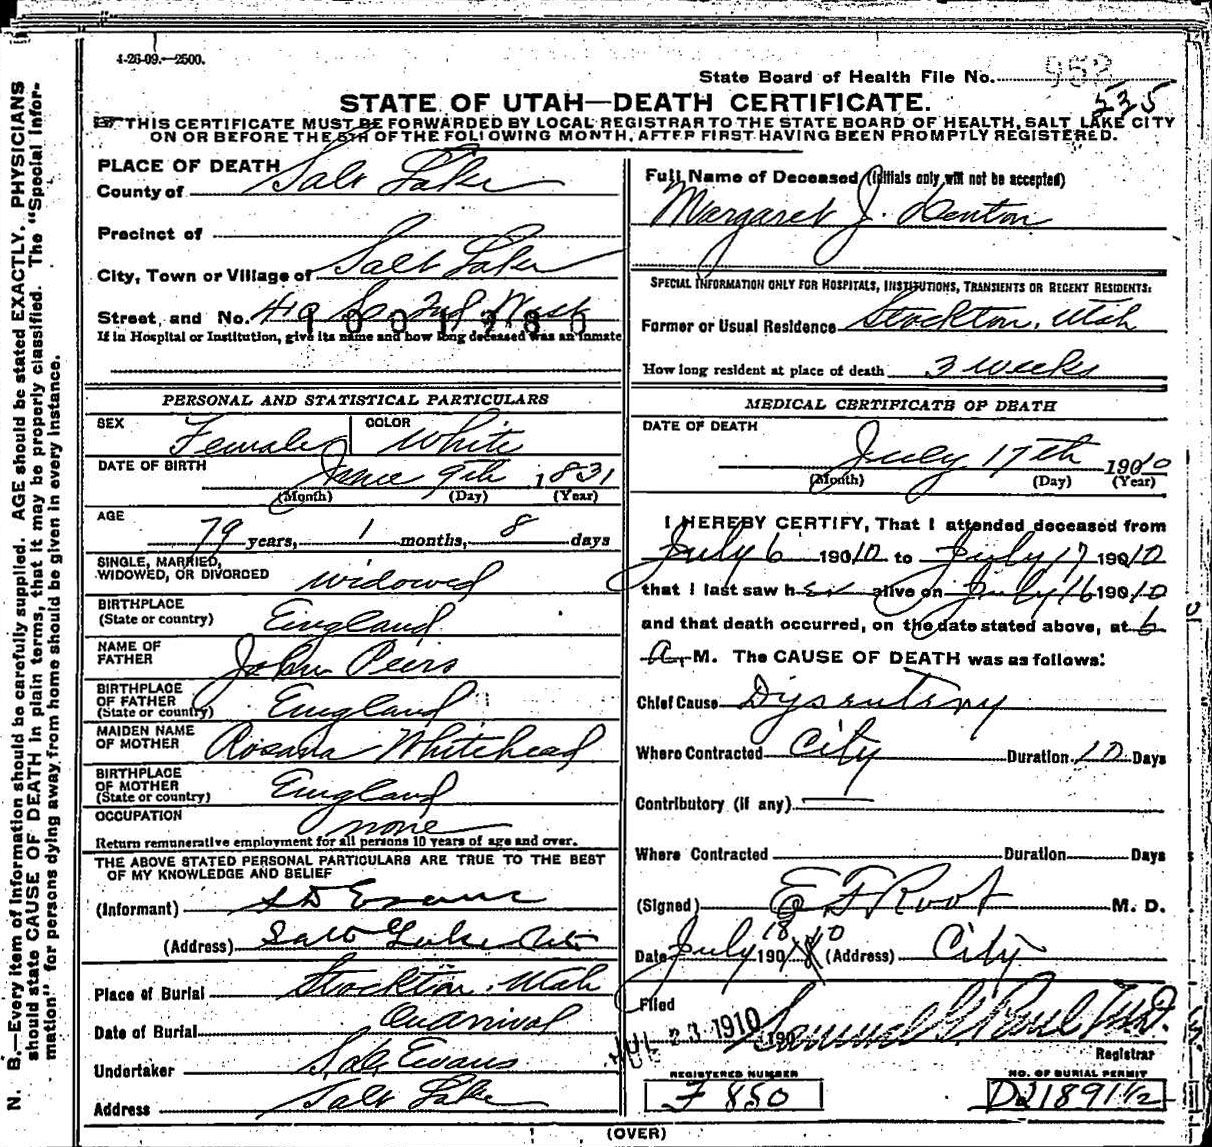 4-26-09.—2500.
State Board of Health File No. 952
235
STATE OF UTAH—DEATH CERTIFICATE.
THIS CERTIFICATE MUST BE FORWARDED BY LOCAL REGISTRAR TO THE STATE BOARD OF HEALTH, SALT LAKE CITY
ON OR BEFORE THE 5TH OF THE FOLLOWING MONTH, AFTER FIRST HAVING BEEN PROMPTLY REGISTERED.
PLACE OF DEATH
County of Salt Lake
Precinct of
City, Town or Village of Salt Lake
Street, and No. 40 So 2nd West
1001280
If in Hospital or Institution, give its name and how long deceased was an inmate
PERSONAL AND STATISTICAL PARTICULARS
SEX Female COLOR White
DATE OF BIRTH June 9th 1831
(Month) (Day) (Year)
AGE
79 years, 1 months, 8 days
SINGLE, MARRIED,
WIDOWED, OR DIVORCED widowed
BIRTHPLACE
(State or country) England
NAME OF
FATHER John Peirs
BIRTHPLACE
OF FATHER
(State or country) England
MAIDEN NAME
OF MOTHER Rosana Whitehead
BIRTHPLACE
OF MOTHER
(State or country) England
OCCUPATION none
Return remunerative employment for all persons 10 years of age and over.
THE ABOVE STATED PERSONAL PARTICULARS ARE TRUE TO THE BEST
OF MY KNOWLEDGE AND BELIEF
(Informant) S D Evans
(Address) Salt Lake Ut
Place of Burial Stockton, Utah
Date of Burial On arrival
Undertaker S.D. Evans
Address Salt Lake
Full Name of Deceased (Initials only will not be accepted)
Margaret J. Denton
SPECIAL INFORMATION ONLY FOR HOSPITALS, INSTITUTIONS, TRANSIENTS OR RECENT RESIDENTS:
Former or Usual Residence Stockton, Utah
How long resident at place of death 3 weeks
MEDICAL CERTIFICATE OF DEATH
DATE OF DEATH
July 17th 1910
(Month) (Day) (Year)
I HEREBY CERTIFY, That I attended deceased from
July 6 1910 to July 17 1910
that I last saw her alive on July 16 1910
and that death occurred, on the date stated above, at 6
A. M. The CAUSE OF DEATH was as follows:
Chief Cause Dysentery
Where Contracted City Duration 10 Days
Contributory (if any)
Where Contracted Duration Days
(Signed) E F Root M. D.
Date July 18 1910 (Address) City
Filed JUL 23 1910 190 Samuel G. Paul M.D.
Registrar
REGISTERED NUMBER
F 850
NO. OF BURIAL PERMIT
D21891 1/2
(OVER)
N. B.—Every item of information should be carefully supplied. AGE should be stated EXACTLY. PHYSICIANS
should state CAUSE OF DEATH in plain terms, that it may be properly classified. The "Special Infor-
mation" for persons dying away from home should be given in every instance.